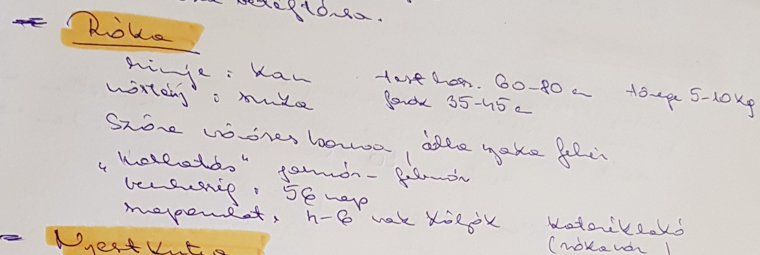 Róka
hímje : kan test hossz. 60-80 cm tömege 5-10 kg
nőstény : szuka farok 35-45 cm
Szőre vöröses barna, álla nyaka fehér
"koslatás" január - február
vemhesség : 56 nap
szaporulat : 4-6 vak kölyök kotoréklakó
(rókavár)
Nyestkutya